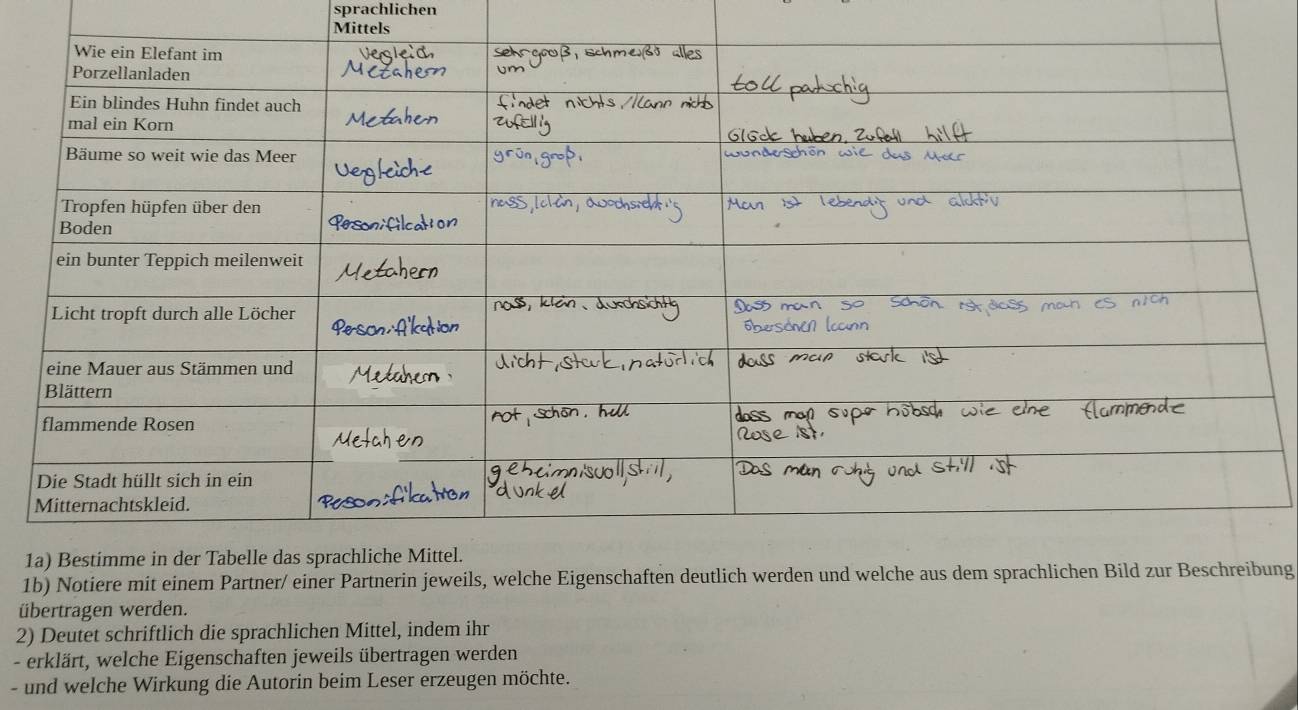 sprachlichen
Mittels
Wie ein Elefant im
Porzellanladen
Vergleich
Metahern
sehr groß, schmeißt alles
um
toll patschig
Ein blindes Huhn findet auch
mal ein Korn
Metahern
findet nichts, /kann nichts
zufällig
Glück haben, Zufall hilft
Bäume so weit wie das Meer
Vergleiche
grün, groß,
wunderschön wie das Meer
Tropfen hüpfen über den
Boden
Personifikation
nass, klein, durchsichtig
Man ist lebendig und aktiv
ein bunter Teppich meilenweit
Metahern
Licht tropft durch alle Löcher
Personifikation
nass, klein, durchsichtig
Dass man so schön ist, dass man es nich
übersehen kann
eine Mauer aus Stämmen und
Blättern
Metahern
dicht, stark, natürlich
dass man stark ist
flammende Rosen
Metahen
rot, schön, hell
dass man super hübsch wie eine flammende
Rose ist.
Die Stadt hüllt sich in ein
Mitternachtskleid.
Personifikation
geheimnisvoll, still,
dunkel
Das man ruhig und still ist
1a) Bestimme in der Tabelle das sprachliche Mittel.
1b) Notiere mit einem Partner/ einer Partnerin jeweils, welche Eigenschaften deutlich werden und welche aus dem sprachlichen Bild zur Beschreibung
übertragen werden.
2) Deutet schriftlich die sprachlichen Mittel, indem ihr
- erklärt, welche Eigenschaften jeweils übertragen werden
- und welche Wirkung die Autorin beim Leser erzeugen möchte.